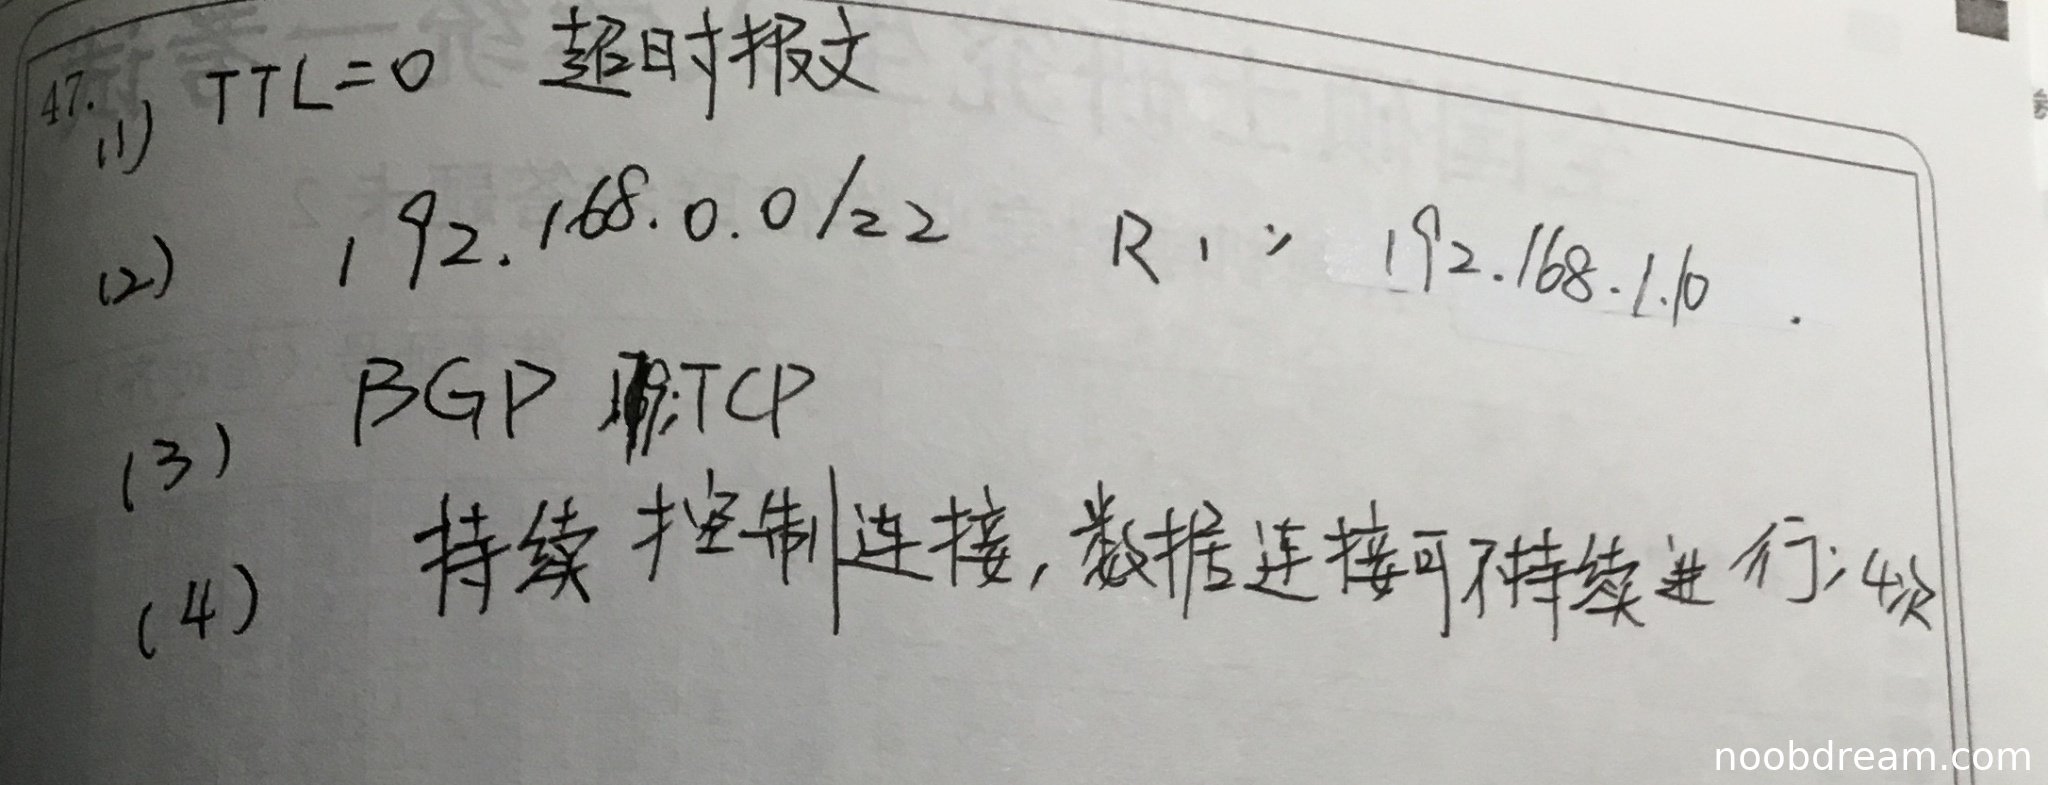 47.
(1) TTL=0 超时报文
(2) 192.168.0.0/22 R1: 192.168.1.10.
(3) BGP TCP
(4) 持续控制连接,数据连接可不持续进行;4次
noobdream.com